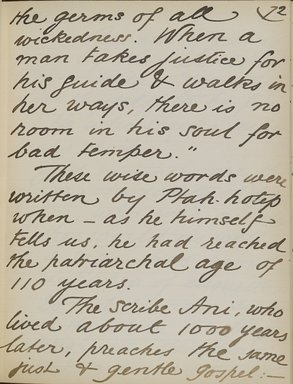 72
the germs of all
wickedness. When a
man takes justice for
his guide & walks in
her ways, there is no
room in his soul for
bad temper."
These wise words were
written by Ptah-hotep
when – as he himself
tells us, he had reached
the patriarchal age of
110 years.
The scribe Ani, who
lived about 1000 years
later, preaches the same
just & gentle gospel:—